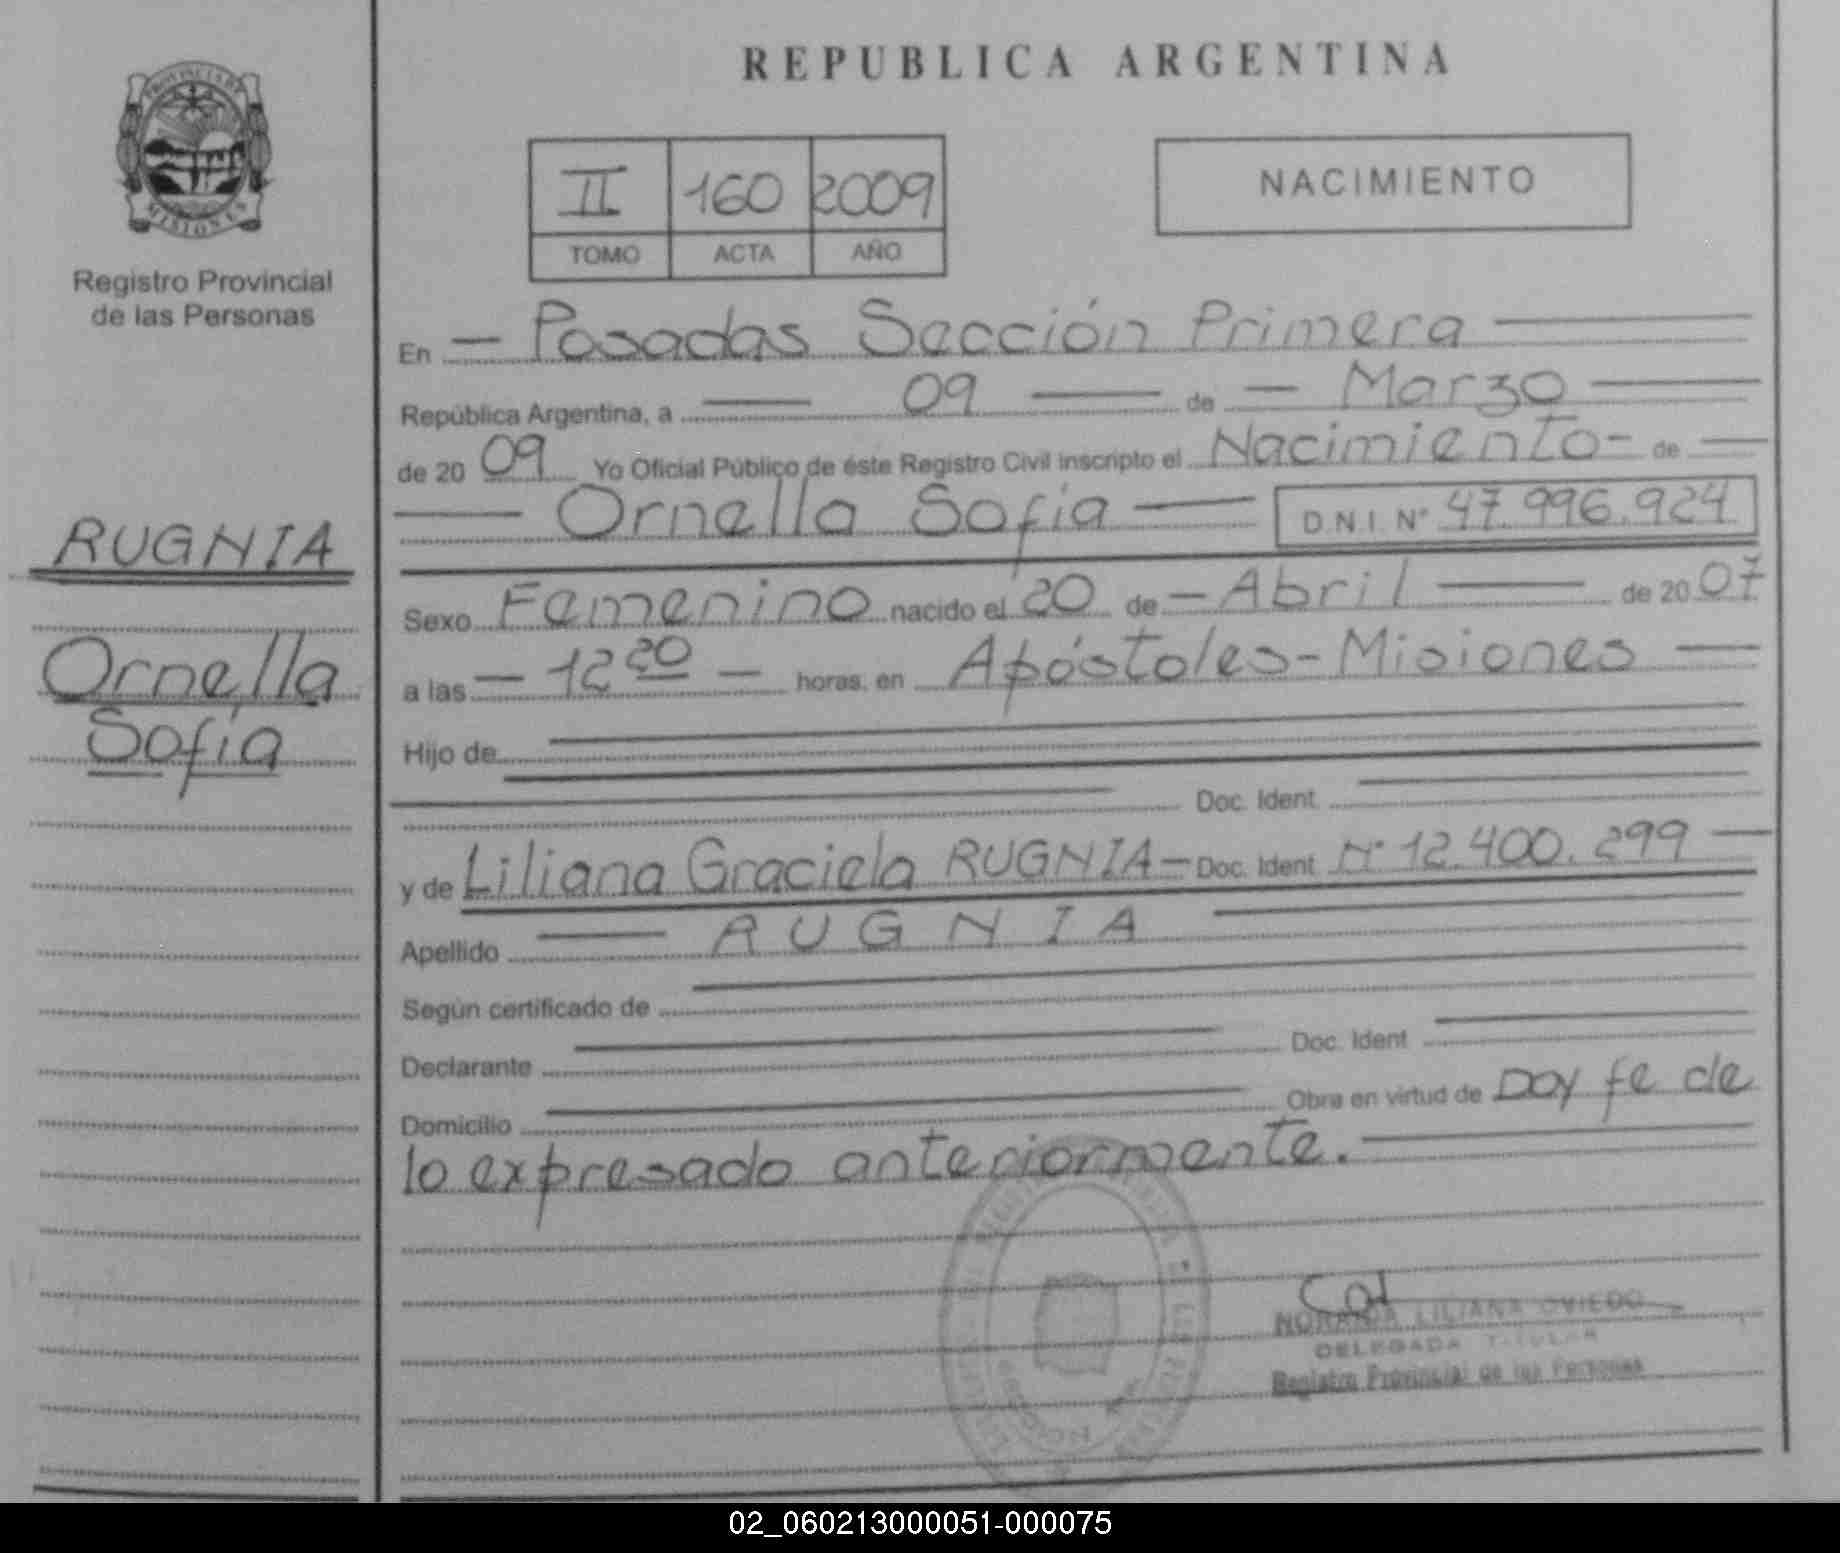 PROVINCIA DE
MISIONES
Registro Provincial
de las Personas
RUGNIA
Ornella
Sofía
REPUBLICA ARGENTINA
II 160 2009
TOMO ACTA AÑO
NACIMIENTO
En - Posadas Sección Primera
República Argentina, a 09 de - Marzo
de 20 09 Yo Oficial Público de éste Registro Civil inscripto el Nacimiento - de
Ornella Sofía D.N.I. N° 47.996.924
Sexo Femenino nacido el 20 de - Abril de 20 07
a las - 12 20 - horas, en Apóstoles - Misiones
Hijo de
Doc. Ident.
y de Liliana Graciela RUGNIA - Doc. Ident. N° 12.400.299
Apellido RUGNIA
Según certificado de
Declarante Doc. Ident.
Domicilio Obra en virtud de Doy fe de
lo expresado anteriormente.
LILIANA OVIEDO
DELEGADA TITULAR
Registro Provincial de las Personas
02_060213000051-000075